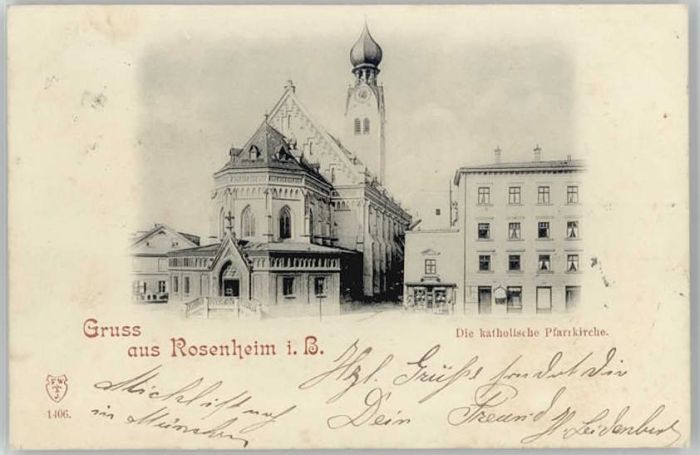 Gruss
aus Rosenheim i. B.
Die katholische Pfarrkirche.
Hzl. Grüße sendet dir
Dein Freund
in München
1406.